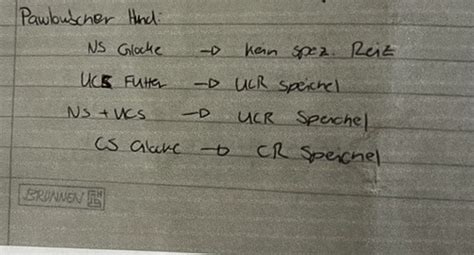 Pawlowscher Hund:
NS Glocke → kein spez. Reiz
UCS Futter → UCR Speichel
NS + UCS → UCR Speichel
CS Glocke → CR Speichel
BRUNNEN